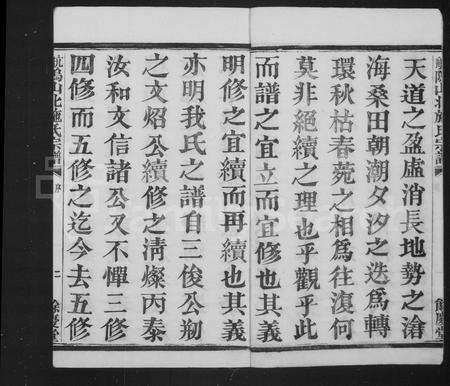 天道之盈虛消長地勢之滄
海桑田朝潮夕汐之迭爲轉
環秋枯春菀之相爲往復何
莫非絕續之理也乎觀乎此
而譜之宜立而宜修也其義
明修之宜續而再續也其義
亦明我氏之譜自三俊公剏
之文炤公續修之淸燦丙泰
汝和文信諸公又不憚三修
四修而五修之迄今去五修
山北施氏宗譜
序
二
餘慶堂